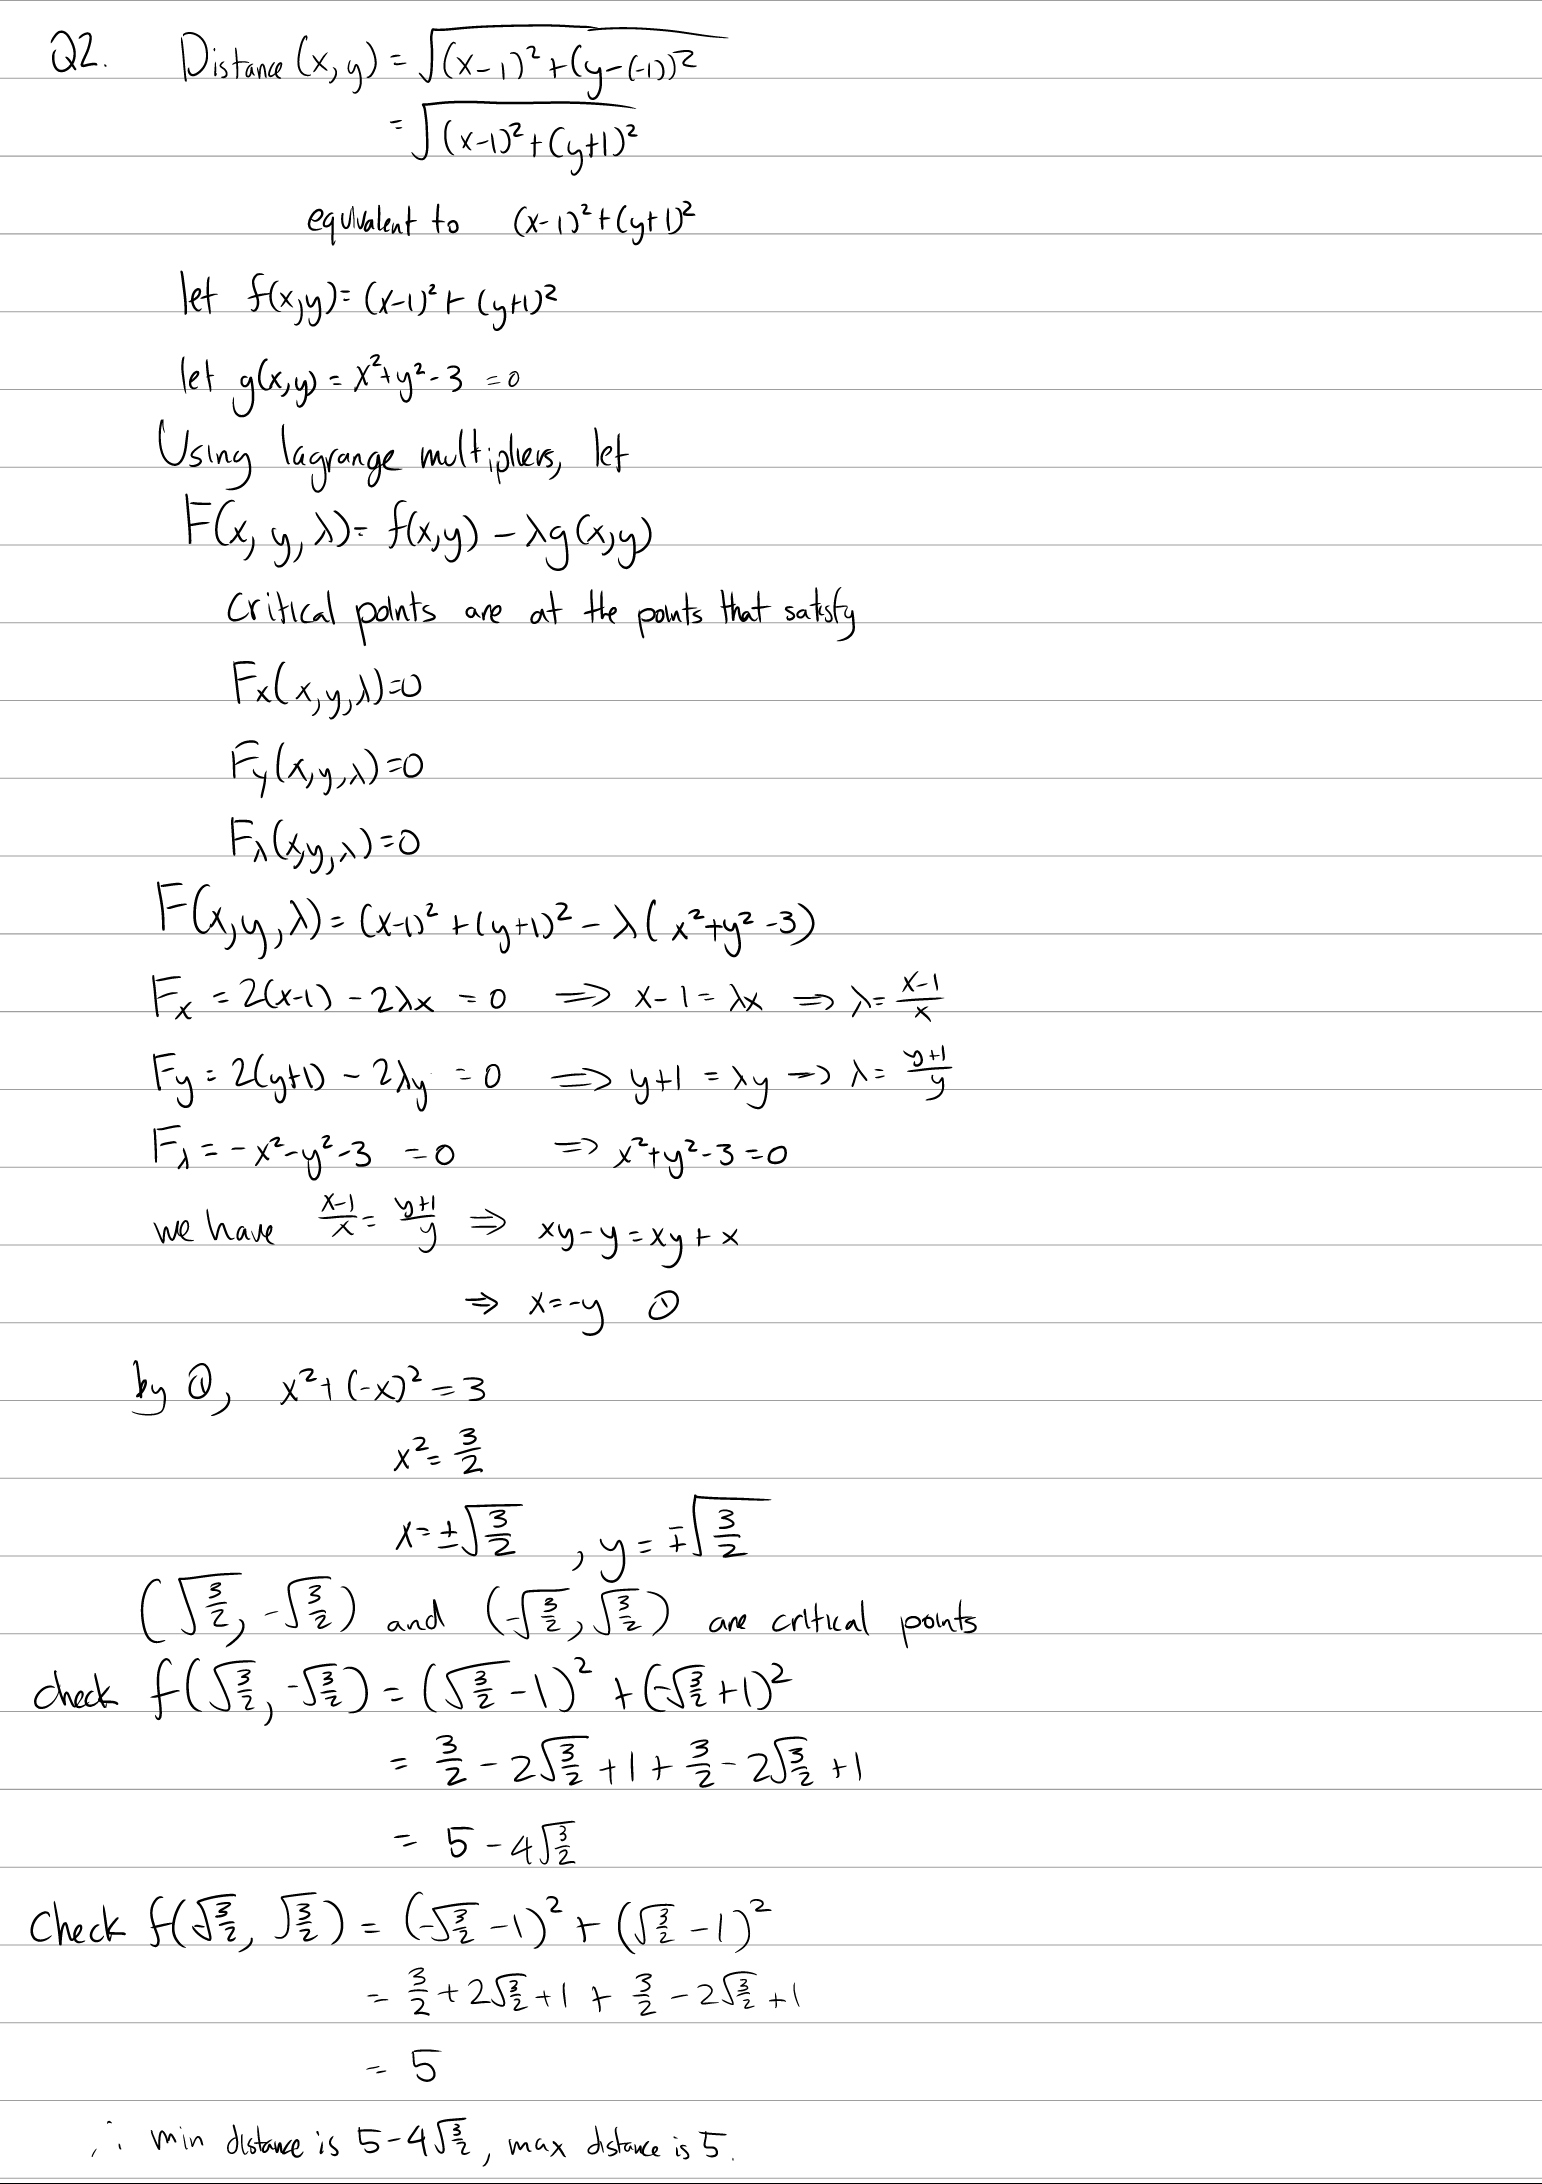 Q2. Distance (x, y) = √((x-1)²+(y-(-1))²)
= √((x-1)²+(y+1)²)
equivalent to (x-1)²+(y+1)²
let f(x,y) = (x-1)² + (y+1)²
let g(x,y) = x²+y²-3 =0
Using lagrange multipliers, let
F(x, y, λ) = f(x,y) - λg(x,y)
critical points are at the points that satisfy
Fₓ(x,y,λ)=0
F_y(x,y,λ)=0
F_λ(x,y,λ)=0
F(x,y,λ) = (x-1)² + (y+1)² - λ(x²+y²-3)
Fₓ = 2(x-1) - 2λx = 0 ⟹ x-1 = λx ⟹ λ = (x-1)/x
F_y = 2(y+1) - 2λy = 0 ⟹ y+1 = λy ⟹ λ = (y+1)/y
F_λ = -x²-y²-3 = 0 ⟹ x²+y²-3=0
we have (x-1)/x = (y+1)/y ⟹ xy-y=xy+x
⟹ x=-y ①
by ①, x²+(-x)²=3
x² = 3/2
x = ±√(3/2) , y = ∓√(3/2)
(√(3/2), -√(3/2)) and (-√(3/2), √(3/2)) are critical points
check f(√(3/2), -√(3/2)) = (√(3/2) -1)² + (-√(3/2) +1)²
= 3/2 - 2√(3/2) +1 + 3/2 - 2√(3/2) +1
= 5 - 4√(3/2)
Check f(√(3/2), √(3/2)) = (-√(3/2) -1)² + (√(3/2) -1)²
= 3/2 + 2√(3/2) +1 + 3/2 - 2√(3/2) +1
= 5
∴ min distance is 5-4√(3/2), max distance is 5.